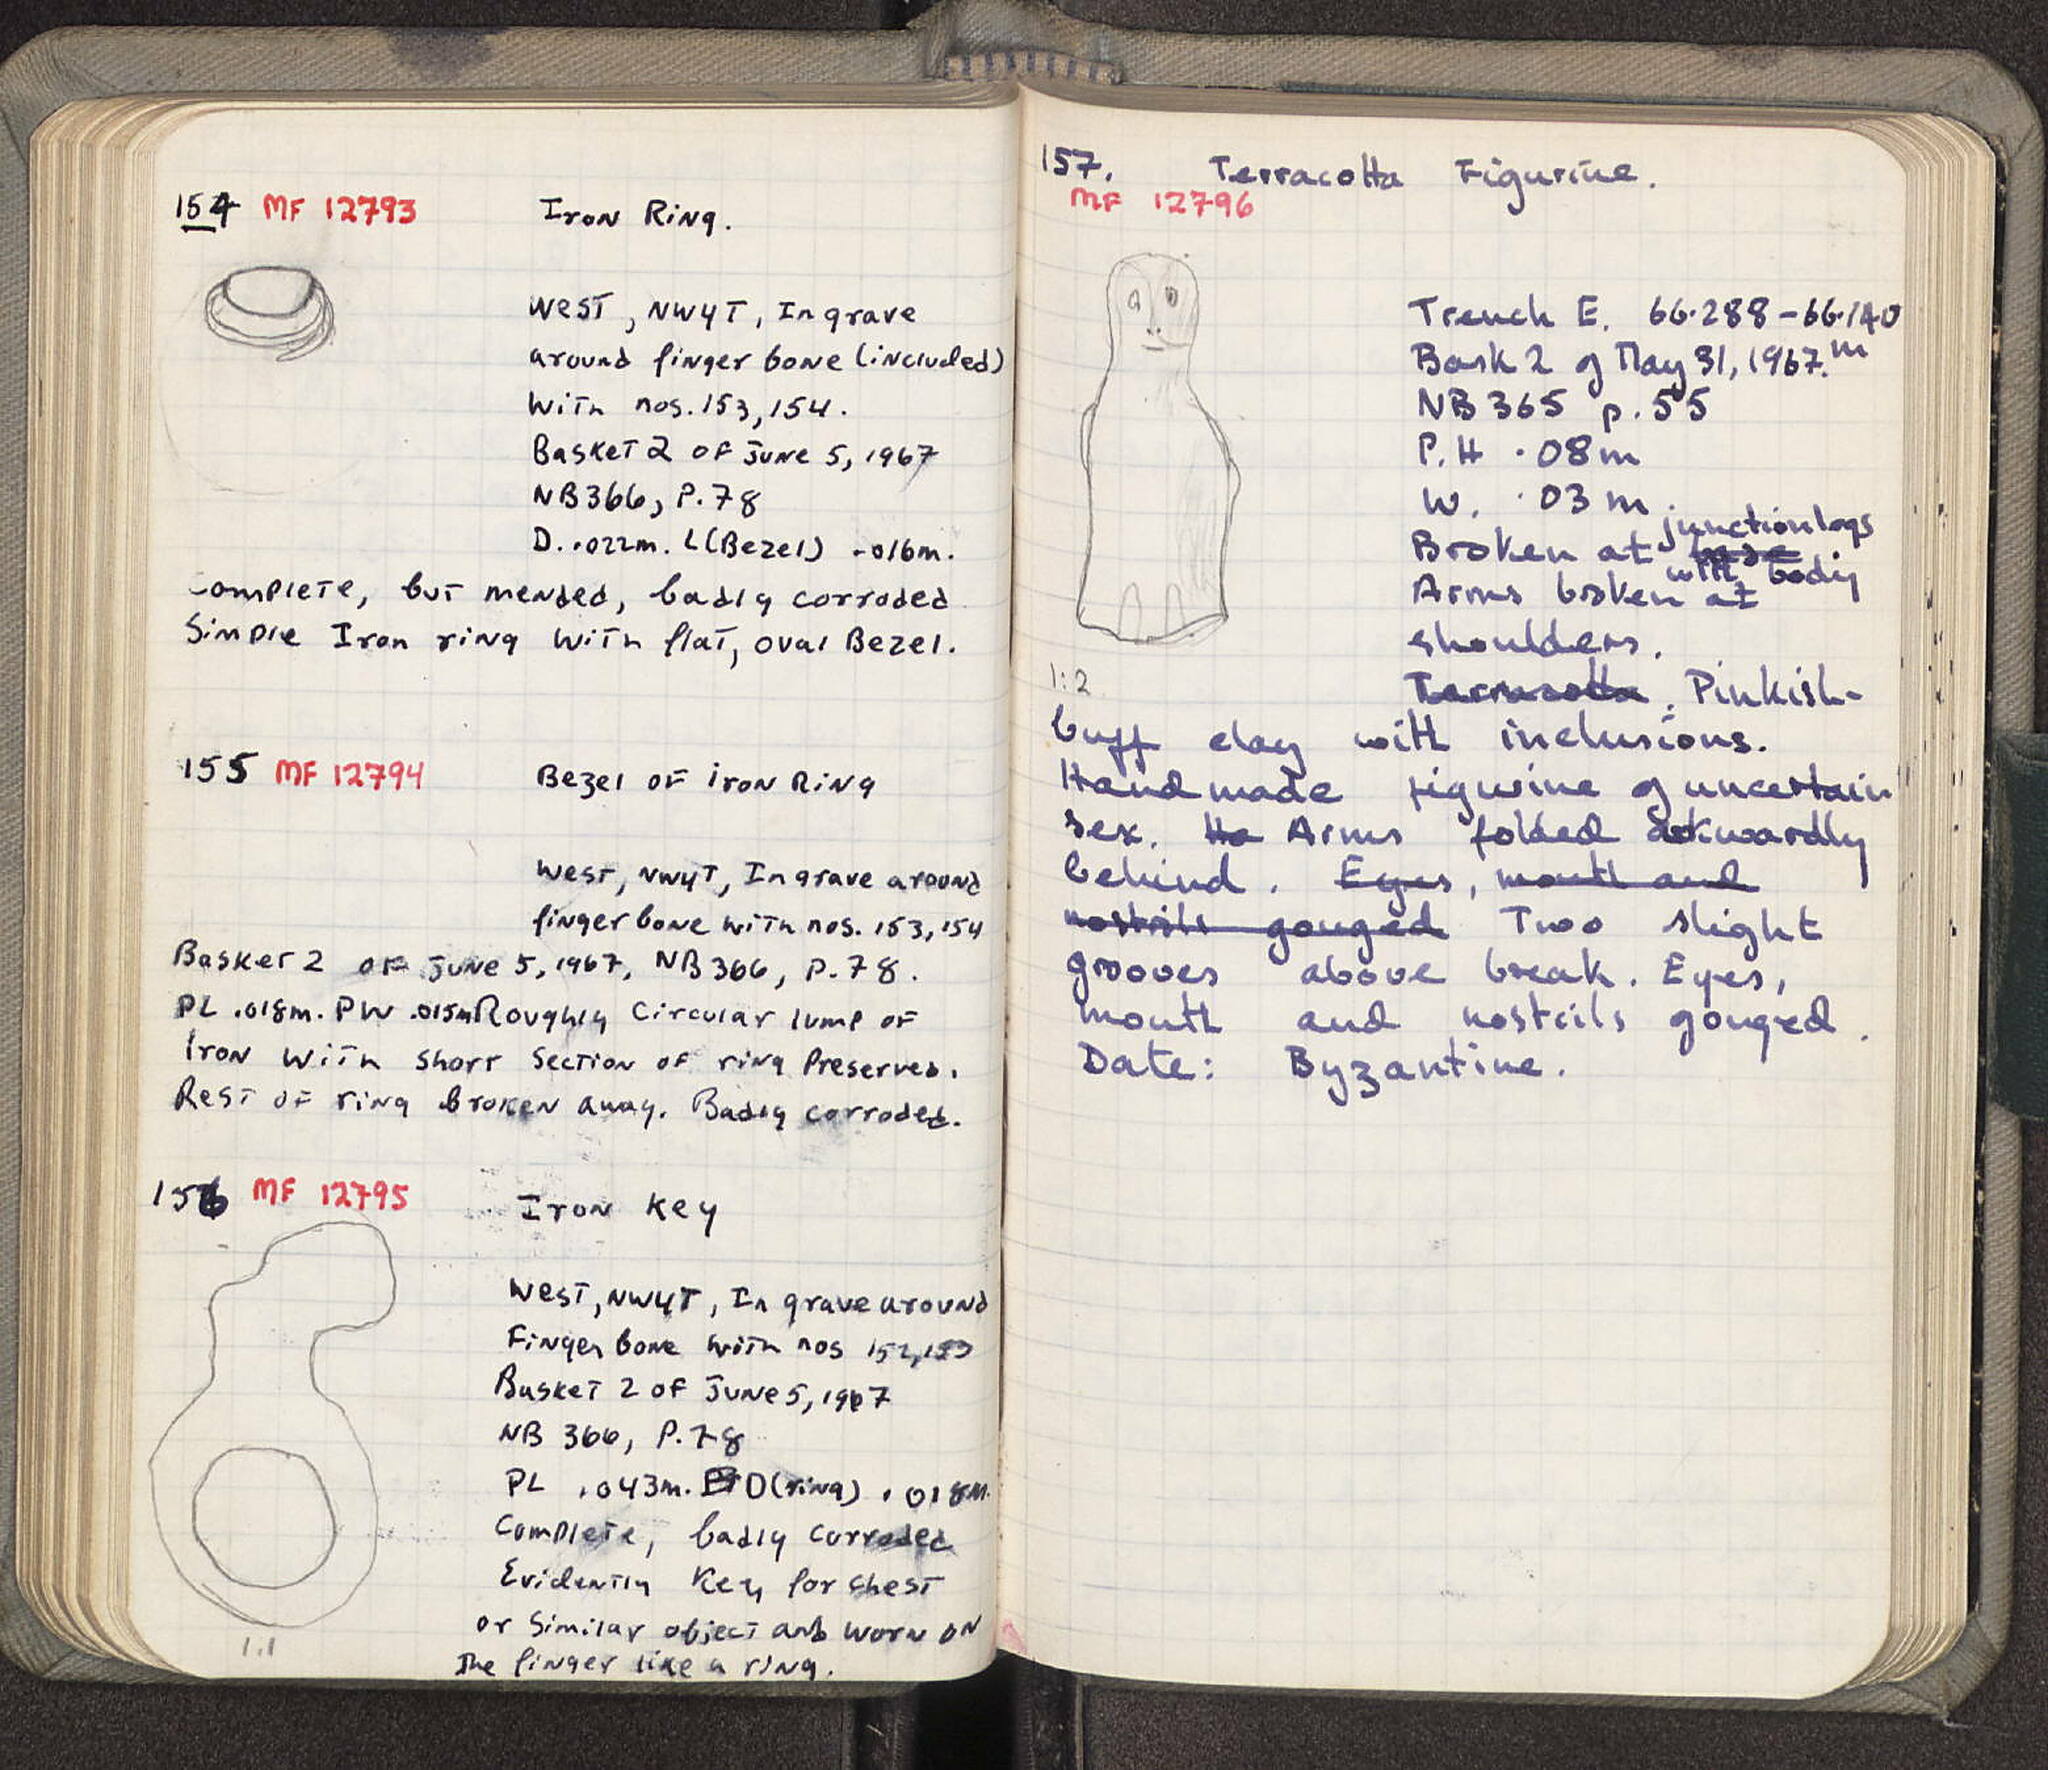 154 MF 12793 Iron Ring.
West, NW4T, In grave
around finger bone (included)
With nos. 153, 154.
Basket 2 of June 5, 1967
NB 366, P. 78
D. .022m. L(Bezel) .016m.
Complete, but mended, badly corroded
Simple Iron ring With flat, oval Bezel.
155 MF 12794 Bezel of iron Ring
West, NW4T, In grave around
finger bone with nos. 153, 154
Basket 2 of June 5, 1967, NB 366, P. 78.
PL .018m. PW .015m Roughly Circular lump of
Iron With Short Section of ring Preserved.
Rest of ring broken away. Badly corroded.
156 MF 12795 Iron Key
West, NW4T, In grave around
Finger bone with nos 152, 153
Basket 2 of June 5, 1967
NB 366, P. 78
PL .043m. D(ring) .018m.
Complete, badly Corroded
Evidently Key for chest
or Similar object and worn on
The finger like a ring.
1:1
157. Terracotta Figurine.
MF 12796
Trench E. 66.288-66.140 m
Bask 2 of May 31, 1967.
NB 365 p. 55
P.H .08m
W. .03m.
Broken at junction legs
with body
Arms broken at
shoulders.
1:2
Terracotta. Pinkish-
buff clay with inclusions.
Handmade figurine of uncertain
sex. Ha Arms folded awkwardly
behind. Eyes, mouth and
nostrils gouged Two slight
grooves above break. Eyes,
mouth and nostrils gouged.
Date: Byzantine.